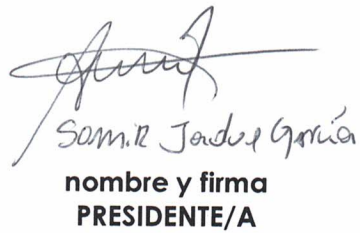 Samir Jadue García
nombre y firma
PRESIDENTE/A